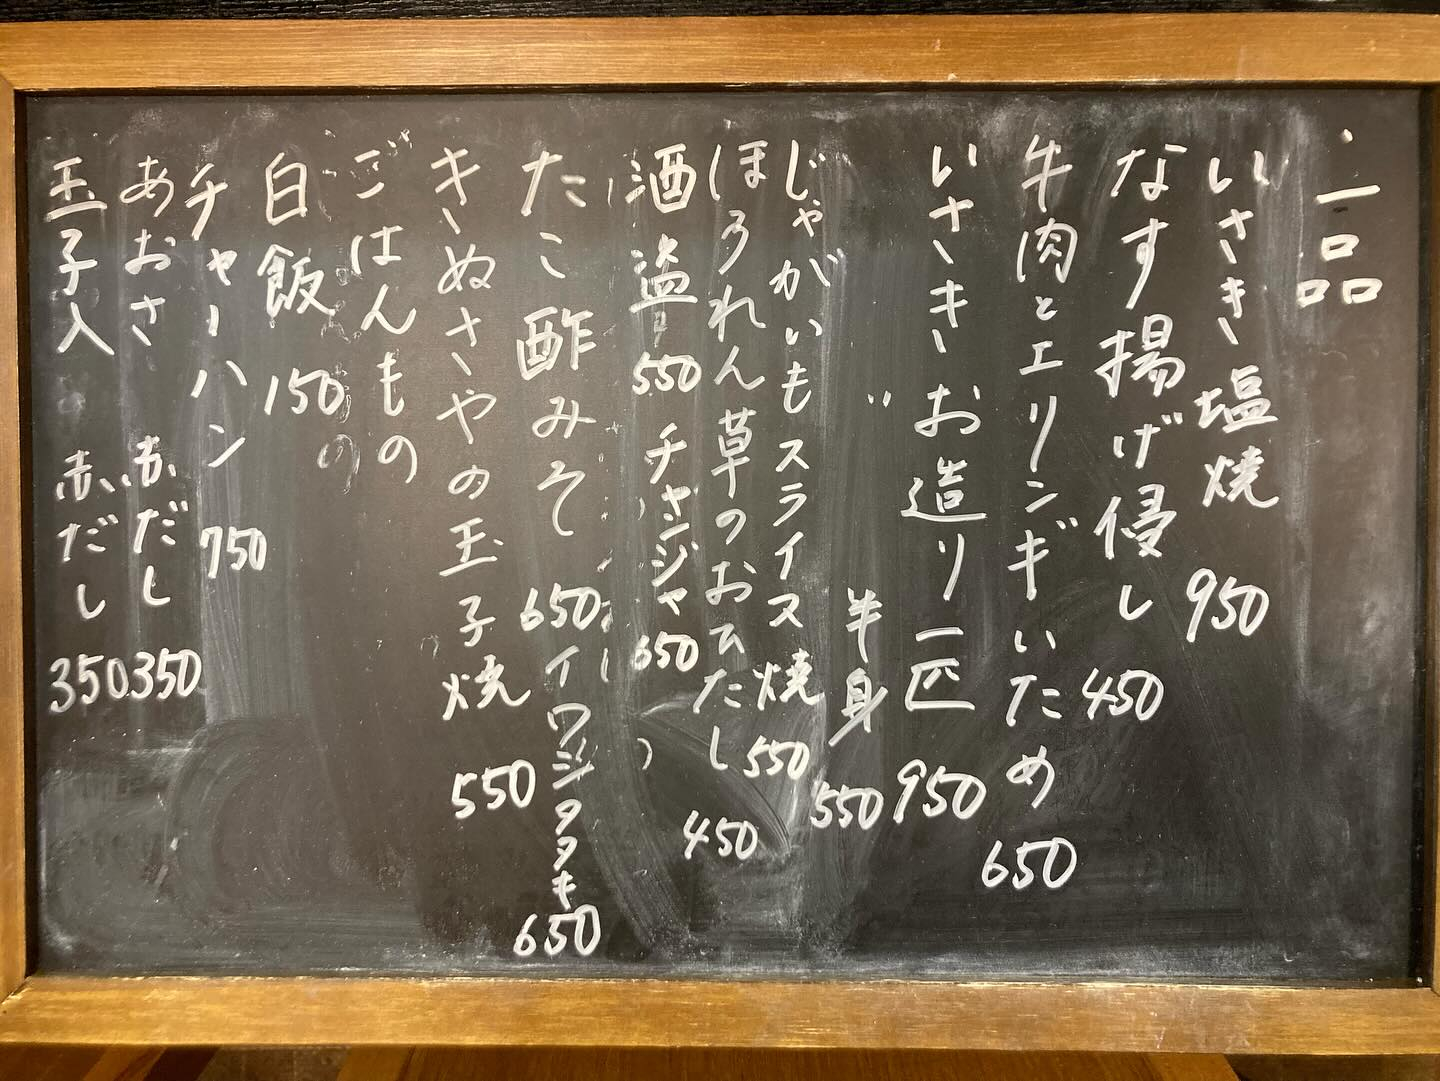 ・一品
いさき塩焼 950
なす揚げ侵し 450
牛肉とエリンギいため 650
いさきお造り一匹 950
〃 半身 550
じゃがいもスライス焼 550
ほうれん草のおひたし 450
酒盗 550 チャンジャ 650
たこ酢みそ 650 イワシタタキ 650
きぬさやの玉子焼 550
ごはんもの
白飯 150
チャーハン 750
あおさ 赤だし 350
玉子入 赤だし 350